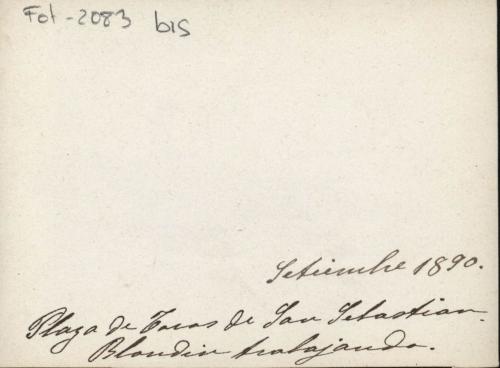 Fot-2083 bis
Setiembre 1890.
Plaza de Toros de San Sebastian.
Blondin trabajando.